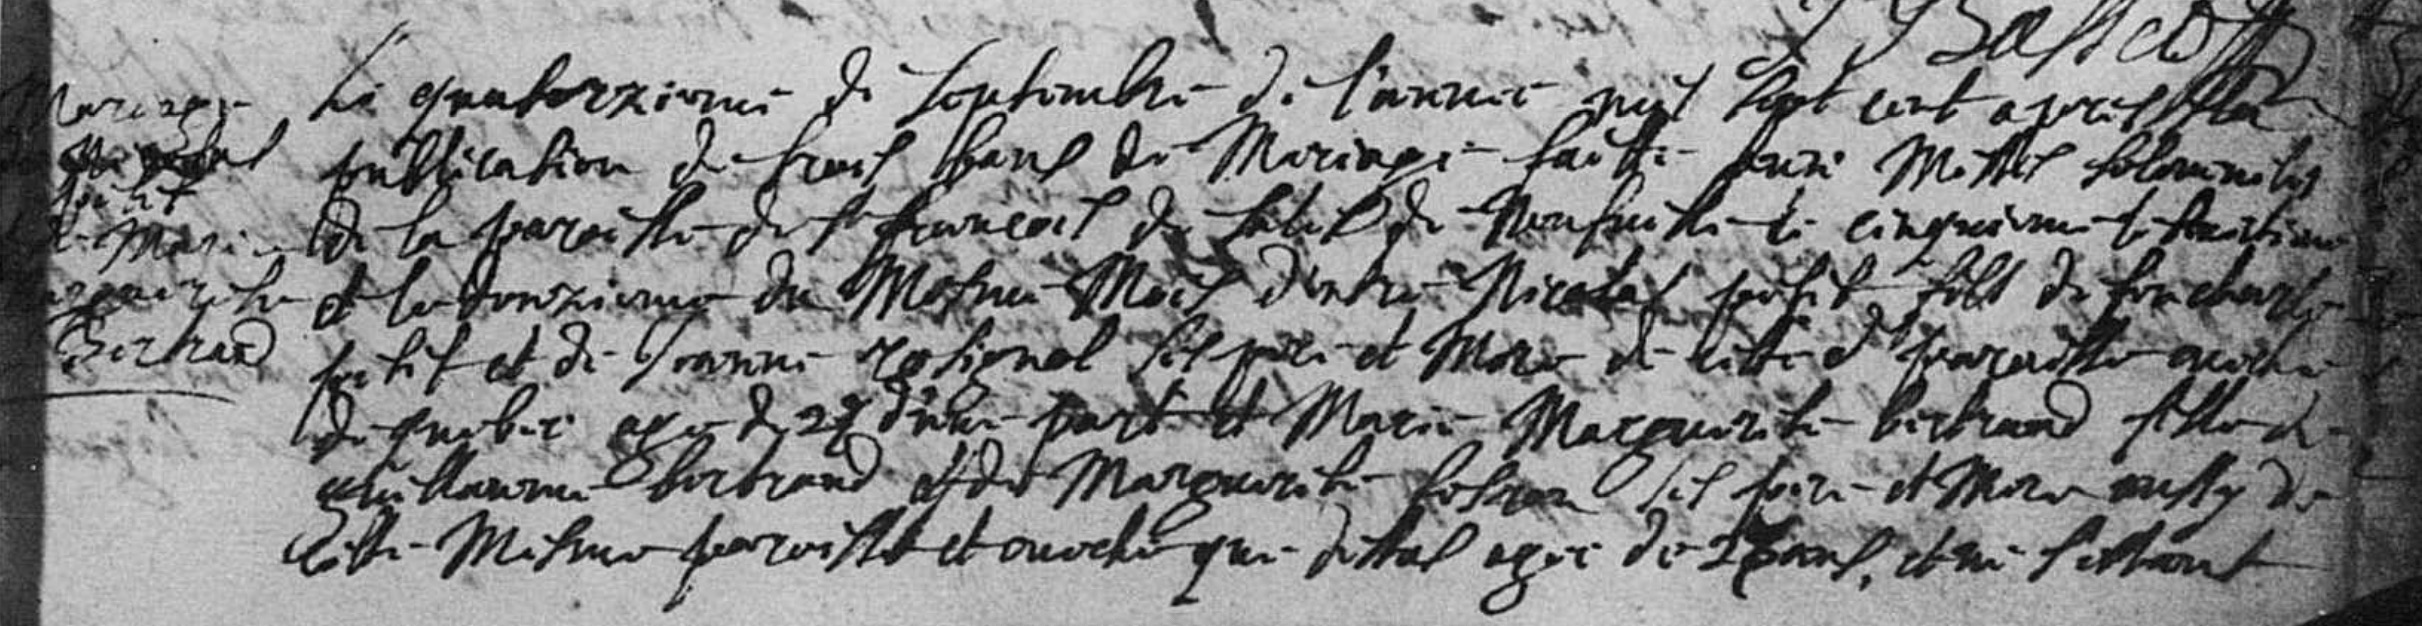 Bassetoff
Mariage
petit
& Marie
Marguerite
Bertrand
Le quatorzieme de septembre de l'année mil sept cent apres la
publication de trois bans de Mariage faitte aux Messes solemnelles
de la paroisse de st francois de Sales de Neufville le cinquieme le huitieme
et le douzieme du Mesme Mois d'entre Nicolas petit fils de feu charles
petit et de Jeanne rosignol ses pere et Mere de cette d paroisse eveché
de quebec agé de 27 d'une part et Marie Marguerite bertrand fille de
guillaume bertrand et de Marguerite ses pere et Mere aussy de
cette Mesme paroisse et eveché que dessus agee de ans, et ne sestant